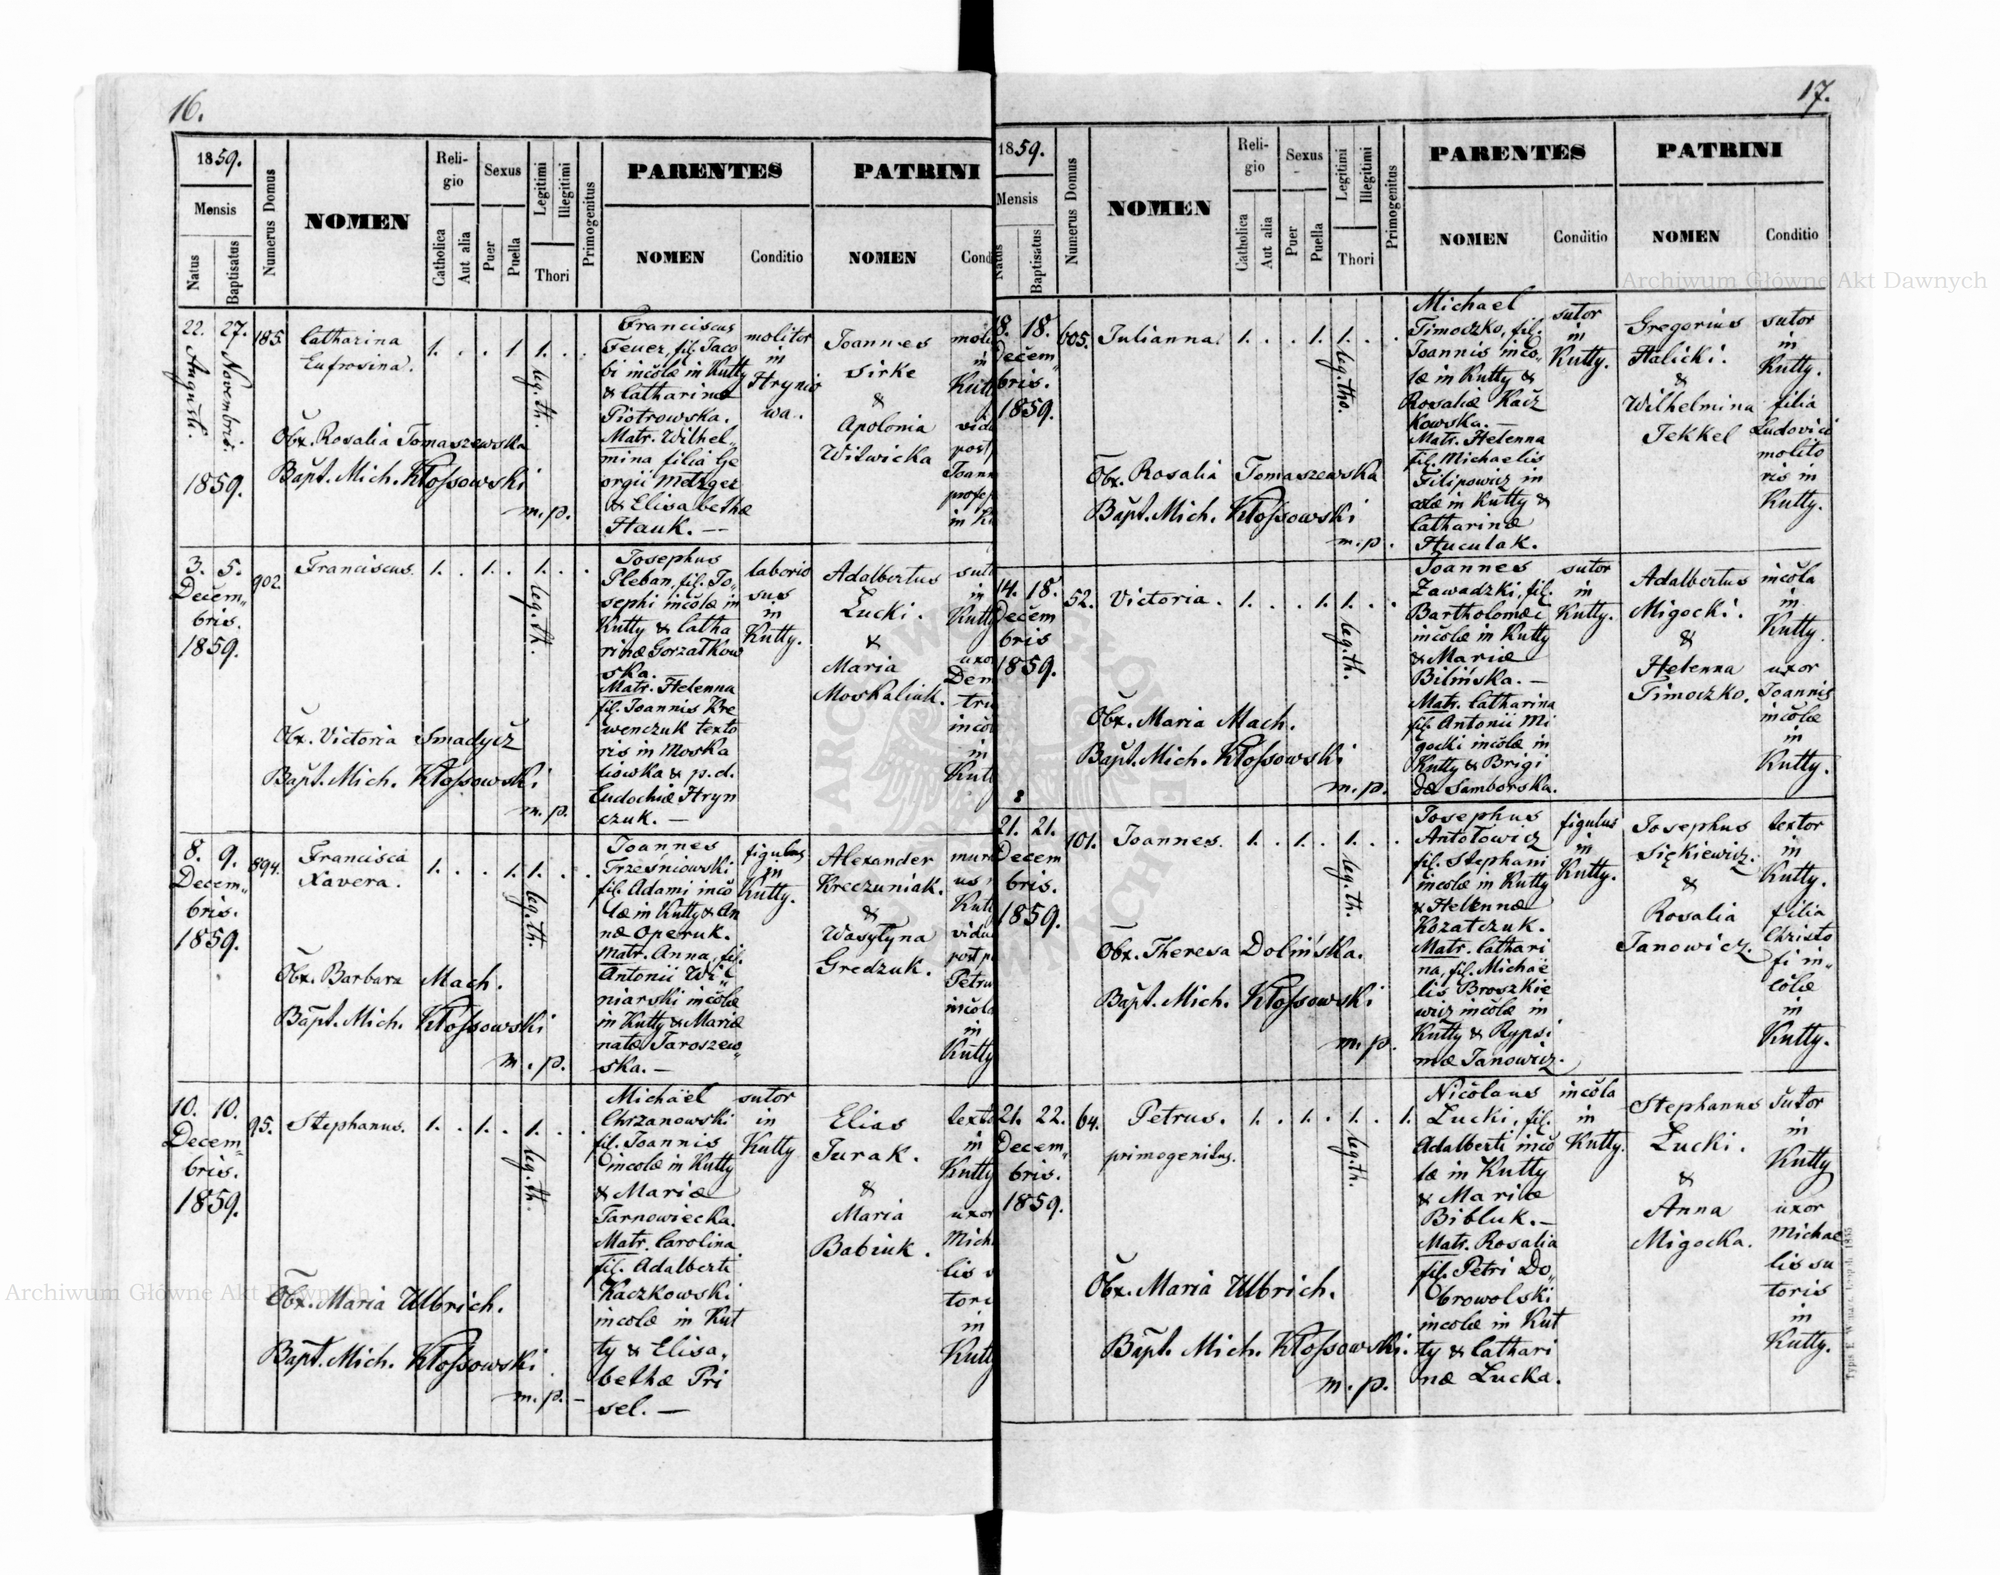 16.
1859.
Mensis
Natus
Baptisatus
Numerus Domus
NOMEN
Reli-
gio
Catholica
Aut alia
Sexus
Puer
Puella
Legitimi
Illegitimi
Thori
Primogenitus
PARENTES
NOMEN
Conditio
PATRINI
NOMEN
Cond
22. 27. 185.
August.
Novembris.
1859.
Catharina
Eufrosina.
1. . . 1 1. . .
leg. th.
Obx. Rosalia Tomaszewska
Bapt. Mich. Kłoſsowski
m.p.
Franciscus
Feuer, fil. Jaco
bi incolæ in Kutty
& Catharinæ
Piotrowska.
Matr. Wilhel„
mina filia Ge
orgii Metzger
& Elisabethæ
Hauk. —
molitor
in
Hrynio
wa.
Joannes
Sirke
&
Apolonia
Witwicka
moli
in
Kutt
vidu
post
Joann
profes
in Ku
3. 5. 902.
Decem„
bris.
1859.
Franciscus.
1. . 1. . 1. . .
leg. th.
Obx. Victoria Smadycz
Bapt. Mich. Kłoſsowski
m.p.
Josephus
Pleban, fil. Jo„
sephi incolæ in
Kutty & Catha
rinæ Gorzałkow
ska.
Matr. Helenna
fil. Joannis Kre
wenczuk texto
ris in Moska
liowska & p.d.
Eudochiæ Hryn
czuk. —
laborio
sus
in
Kutty.
Adalbertus
Łucki.
&
Maria
Moskaliuk.
sut
in
Kutty
uxo
Dem
tri
incol
in
Kut
8. 9. 894.
Decem„
bris.
1859.
Francisca
Xavera.
1. . . 1. 1. . .
leg. th.
Obx. Barbara Mach.
Bapt. Mich. Kłoſsowski
m.p.
Joannes
Trześniowski
fil. Adami inco
læ in Kutty & An
næ Operuk.
Matr. Anna, fil.
Antonii Wi„
niarski incolæ
in Kutty & Mariæ
natæ Jaroszew„
ska. —
figulus
in
Kutty.
Alexander
Kreczuniak.
&
Wasyłyna
Gredzuk.
mur
us
Kut
vidu
post p
Petru
incola
in
Kutty
10. 10. 95.
Decem„
bris.
1859.
Stephanus.
1. . 1. . 1. . .
leg. th.
Obx. Maria Ulbrich.
Bapt. Mich. Kłoſsowski
m.p. —
Michael
Chrzanowski
fil. Joannis
incolæ in Kutty
& Mariæ
Tarnowiecka.
Matr. Carolina
fil. Adalberti
Kaczkowski
incolæ in Kut
ty & Elisa„
bethæ Pri
sel. —
sutor
in
Kutty
Elias
Turak.
&
Maria
Babiuk.
texto
in
Kutty
uxor
Mich
lis s
tori
in
Kutty
17.
1859.
Mensis
Natus
Baptisatus
Numerus Domus
NOMEN
Reli-
gio
Catholica
Aut alia
Sexus
Puer
Puella
Legitimi
Illegitimi
Thori
Primogenitus
PARENTES
NOMEN
Conditio
PATRINI
NOMEN
Conditio
18. 18. 605.
Decem
bris.
1859.
Julianna.
1. . . 1. 1. . .
leg. tho.
Obx. Rosalia Tomaszewska
Bapt. Mich. Kłoſsowski
m.p.
Michael
Timoczko, fil.
Joannis inco„
læ in Kutty &
Rosaliæ Kacz
kowska. —
Matr. Helenna
fil. Michaelis
Filipowicz in
colæ in Kutty &
Catharinæ
Huculak.
sutor
in
Kutty.
Gregorius
Halicki.
&
Wilhelmina
Jekkel
sutor
in
Kutty.
filia
Ludovici
molito
ris in
Kutty.
14. 18. 52.
Decem
bris
1859.
Victoria.
1. . . 1. 1. . .
leg. th.
Obx. Maria Mach.
Bapt. Mich. Kłoſsowski
m.p.
Joannes
Zawadzki, fil.
Bartholomæi
incolæ in Kutty
& Mariæ
Bilińska. —
Matr. Catharina
fil. Antonii Mi
gocki incolæ in
Kutty & Brigi
dæ Samborska.
sutor
in
Kutty.
Adalbertus
Migocki.
&
Helenna
Timoczko.
incola
in
Kutty.
uxor
Joannis
incolæ
in
Kutty.
21. 21. 101.
Decem
bris.
1859.
Joannes.
1. . 1. . 1. . .
leg. th.
Obx. Theresa Dolińska.
Bapt. Mich. Kłoſsowski
m.p.
Josephus
Antołowicz
fil. Stephani
incolæ in Kutty
& Helennæ
Kozatczuk.
Matr. Cathari
na, fil. Michaë
lis Broszkie
wicz incolæ in
Kutty & Rypsi
mæ Janowicz.
figulus
in
Kutty.
Josephus
Siękiewicz.
&
Rosalia
Janowicz.
textor
in
Kutty.
filia
Christo
fi in„
colæ
in
Kutty.
21. 22. 64.
Decem„
bris.
1859.
Petrus.
primogenitus.
1. . 1. . 1. . 1.
leg. th.
Obx. Maria Ulbrich.
Bapt. Mich. Kłoſsowski.
m.p.
Nicolaus
Łucki, fil.
Adalberti inco
læ in Kutty
& Mariæ
Bibluk. —
Matr. Rosalia
fil. Petri Do„
browolski
incolæ in Kut
ty & Cathari
næ Łucka.
incola
in
Kutty.
Stephanus
Łucki.
&
Anna
Migocka.
sutor
in
Kutty
uxor
Michae
lis su
toris
in
Kutty.
Archiwum Główne Akt Dawnych
Archiwum Główne Akt Dawnych